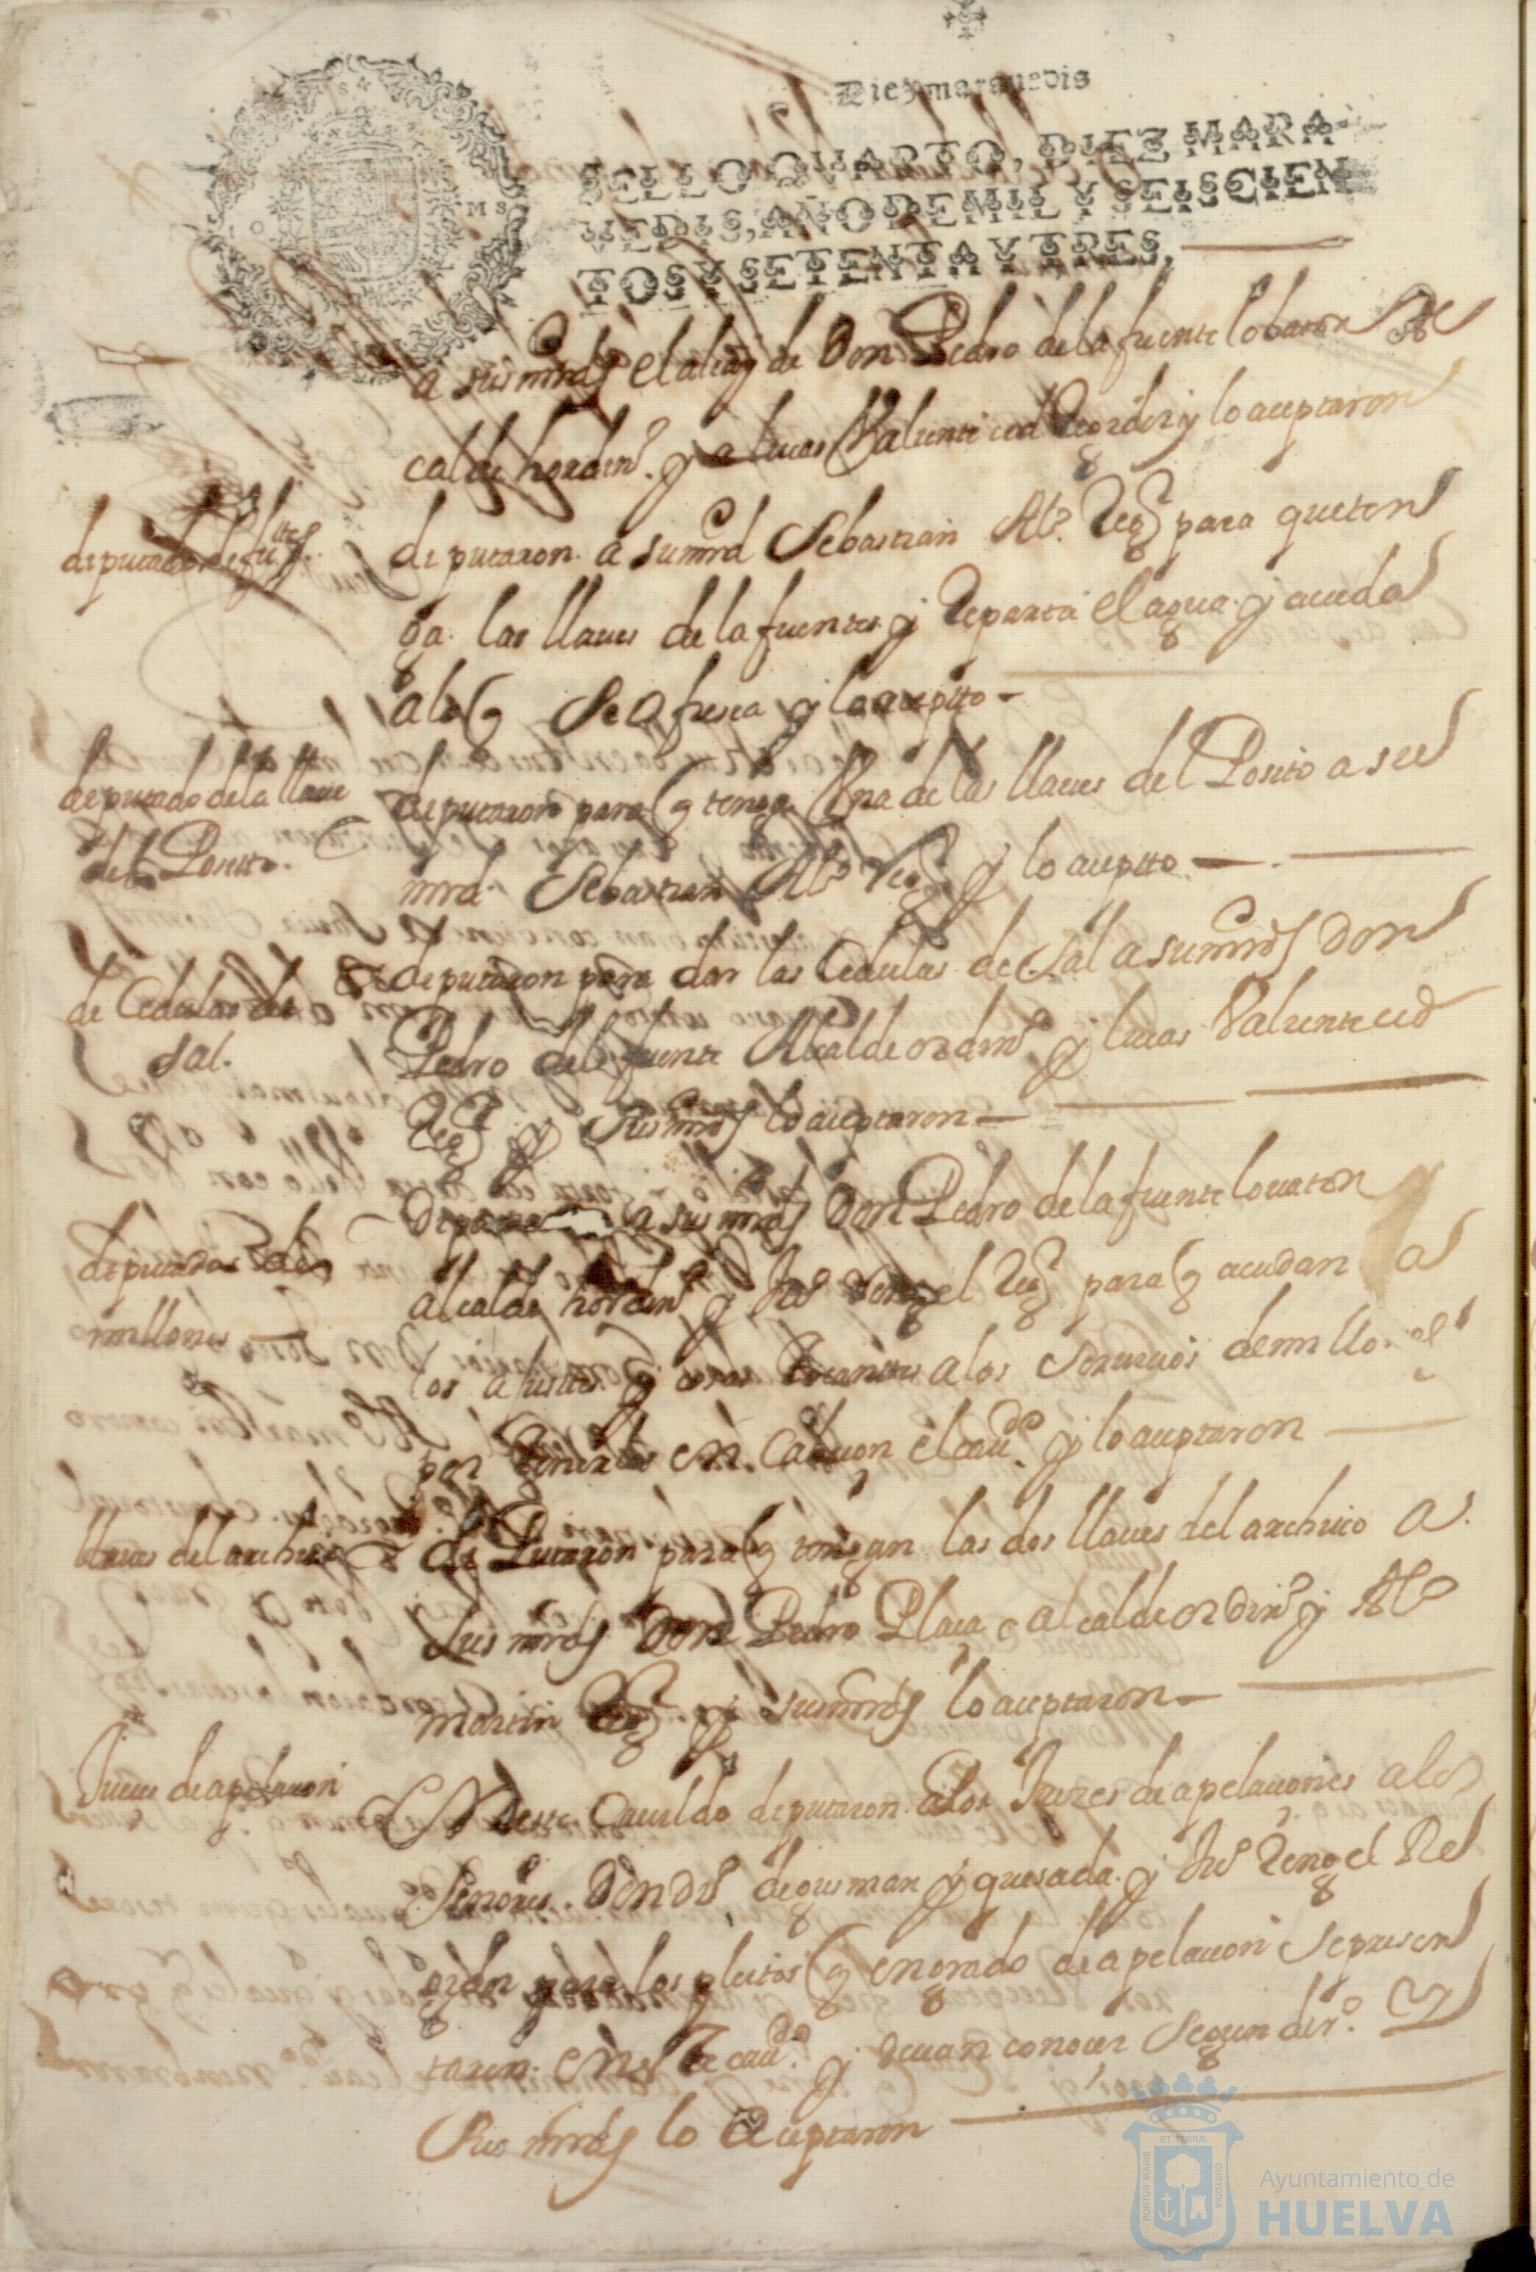 Diez marauedis
SELLO QVARTO, DIEZ MARA-
VEDIS, AÑO DE MIL Y SEISCIEN
TOS Y SETENTA Y TRES.
a sus mrds el de Don Pedro de la fuente lobaton Al
calde hordinº. y a lucas Valiente y lo aceptaron
deputado de fu.tes
deputaron a su mrd Sebastian Alº. Reg para que ten
ga las llaves de la fuente y Reparta el agua y acuda
a lo q Se ofresca y lo acepto
deputado de la llave
del Posito.
deputaron para q tenga Una de las llaves del Posito a su
mrd Sebastian Alº Reg y lo acepto
de Cedulas de
Sal.
deputaron para dar las Cedulas de Sal a sus mrds Don
Pedro de la fuente Alcalde ordinº y lucas Valiente
Reg y Sus mrds lo aceptaron
deputados de
millones
a sus mrds Don Pedro de la fuente lovaton
alcalde hordinº y Juº Rengel Reg para q acudan a
los ajustes y cosas tocantes a los Servicios de millo
por en el cavdº. y lo aceptaron
llaves del archivo
de Putaron para q tengan las dos llaves del archivo a
Sus mrds Don Pedro Plaça alcalde ordinº y Alº
martin Reg y sus mrds lo aceptaron
Jueces de apelacion
En este Cavildo deputaron Jueces de apelaciones a los
Señores Don dº de gusman y quesada y Juº Rengel Re
para los pleitos q en grado de apelacion Se presen
taren en este cavdº. y devan conocer Segun drº. y
Sus mrds lo aceptaron
PORTUS MARIS ET TERRÆ CUSTODIA
Ayuntamiento de
HUELVA